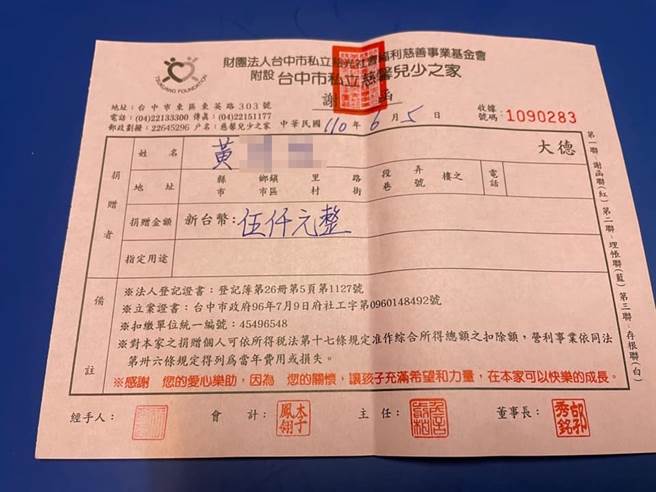 TSUKUANG FOUNDATION
財團法人台中市私立慈光社會福利慈善事業基金會
附設 台中市私立慈馨兒少之家
謝 函
地址：台中市東區東英路303號
電話：(04)22133300 傳真：(04)22151177
郵政劃撥：22645296 戶名：慈馨兒少之家
中華民國 110 年 6 月 5 日
收據號碼：1090283
捐贈者
姓名 黃 大德
地址 縣市 鄉鎮市區 里村 路街 段巷 弄號 樓之 電話
捐贈金額 新台幣：伍仟元整
指定用途
備註
※法人登記證書：登記簿第26冊第5頁第1127號
※立案證書：台中市政府96年7月9日府社工字第0960148492號
※扣繳單位統一編號：45496548
※對本家之捐贈個人可依所得稅法第十七條規定准作綜合所得總額之扣除額，營利事業依同法
第卅六條規定得列為當年費用或損失。
※感謝 您的愛心樂助，因為 您的關懷，讓孩子充滿希望和力量，在本家可以快樂的成長。
第一聯：謝函聯(紅) 第二聯：理帳聯(藍) 第三聯：存根聯(白)
經手人：
會計：
主任：
董事長：